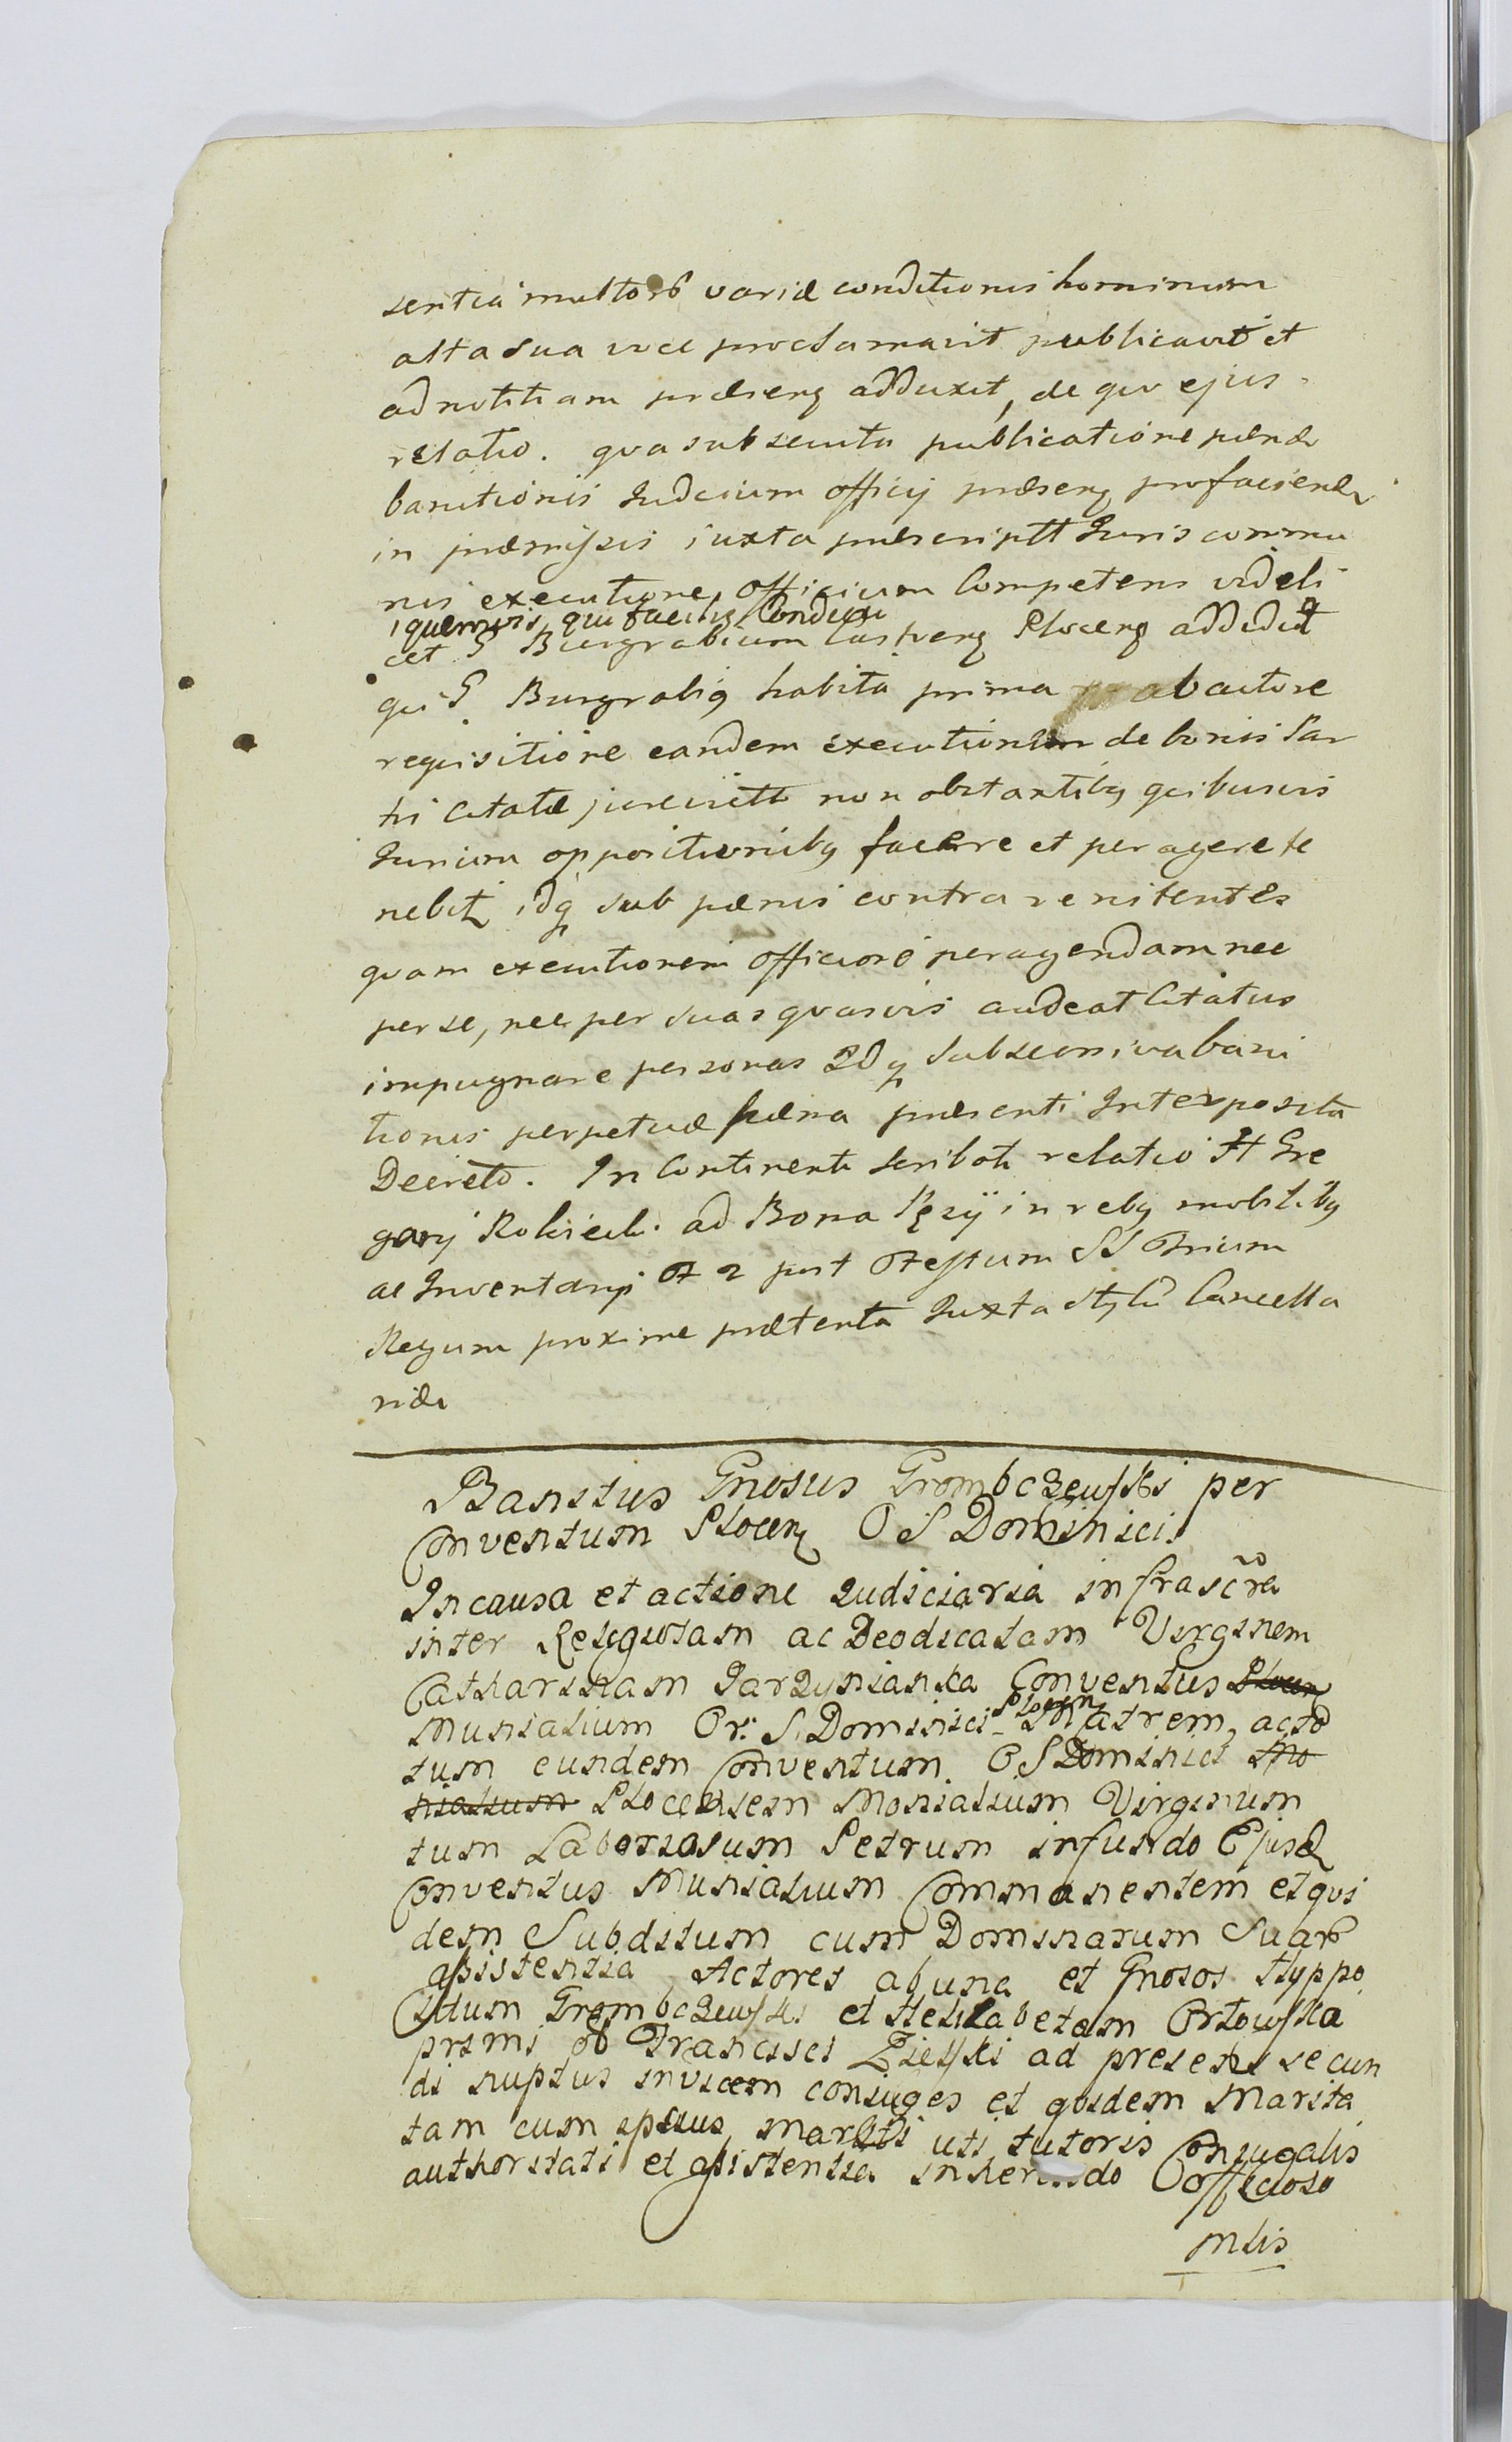 sentia multorō variæ conditionis hominum
alta sua voce proclamavit publicavit et
ad notitiam præsenꝫ adduxit, de quo ejus
relatio. qva subsecuta publicatione pænæ
banitionis Judicium officij præsenꝫ pro facienda
in præmissis iuxta præscriptt Juris commu
nis executione, officium Competens videli
quemvis, qui facilis Conduci
cet G Burgrabium Castrenꝫ Plocenꝫ addidit
qui G. Burgrabiꝯ habita prima ab actore
requisitione eandem executionem de bonis Par
tis Citatæ non obstantibꝯ quibusvis
Jurium oppositionibꝯ facere et peragere te
nebit idqꝫ sub pænis contra renitentes
qvam executionem officiorō peragendam nec
per se, nec per suas qvasvis audeat Citatus
impugnare personas Idqꝫ sub secun. iva bani
tionis perpetuæ pæna præsenti Interposita
Decreto. In Continenti scribatr relatio H Gre
gorij Rokicki ad Bona in rebꝯ mobilibꝯ
ac Inventarijs 2 post Festum SS Trium
Regum proxime prætenta Juxta stylū Cancella
riæ
Banitus Gnosus Grombczewski per
Conventum Plocenꝫ O S Dominici
In causa et actione Judiciaria infrascra
inter Religiosam ac Deodicatam Virginem
Catharinam Jarzynianka Conventus Plocenꝫ
Plocen
Monialium Or: S. Dominici Matrem, acto
tum eundem Conventum O S Dominici Mo
nialium Plocensem Monialium Virginum
tum Laboriosum Petrum in fundo Ejusd
Conventus Monialium Commanentem et qvi
dem Subditum cum Dominarum Suarō
assistentia Actores ab una et Gnosos Hyppo
litum Grombczewski et Helizabetam Orłowska
primi Francisci Zielski ad presens secun
di nuptus invicem coniuges et qvidem Marita
tam cum ipsius mariti uti tutoris Conjugalis
authoritati et assistentia inherendo officioso
mlis